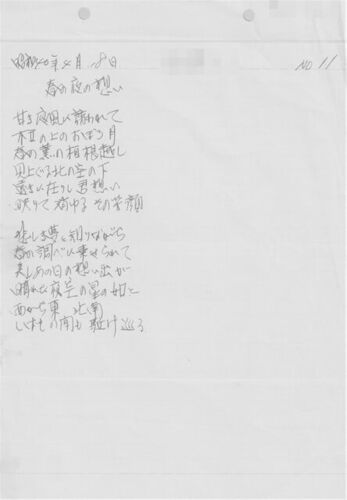 昭和40年4月18日
NO 11
春の夜の想い
甘き夜風に誘われて
の上のおぼろ月
春の薫の垣根越し
見上ぐる北の空の下
遠きに在りし君想い
映りて消ゆるその笑顔
悲しき夢と知りながら
春の調べに乗せられて
美しあの日の想い出が
晴れた夜空の星の如く
西から東 北南
いつしもの間も駈け巡る